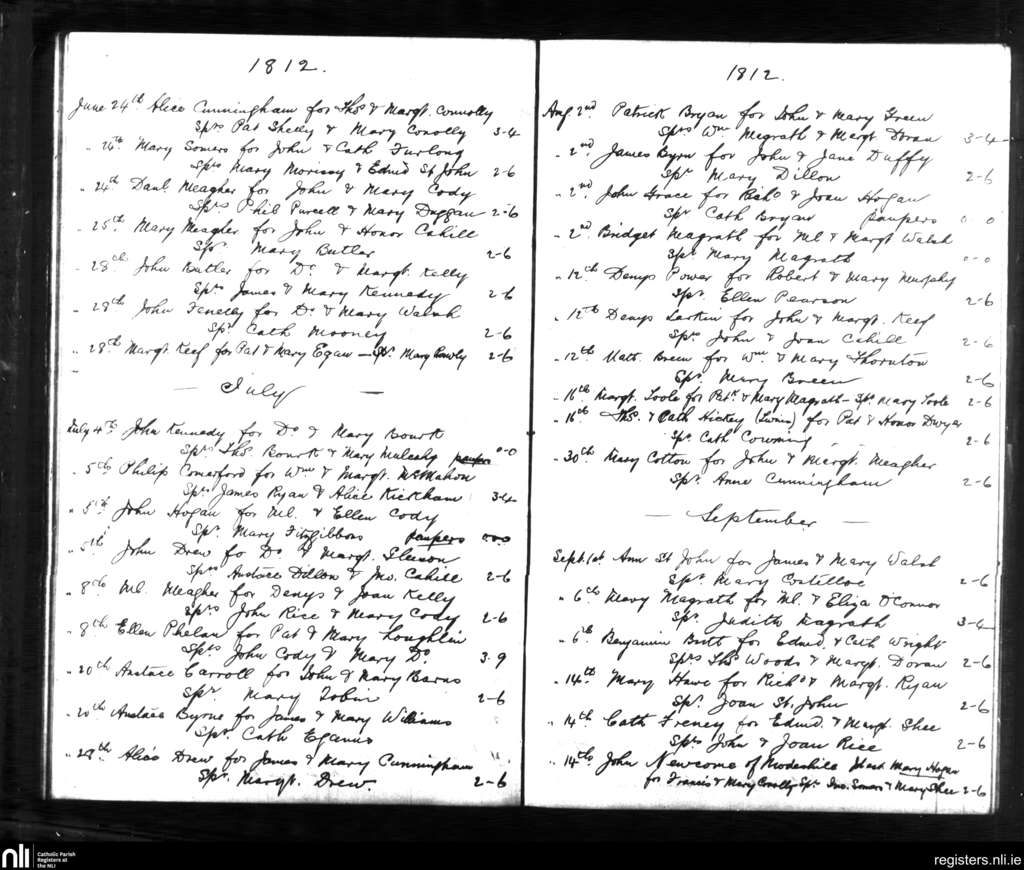 1812.
June 24th Alice Cunningham for Thos & Margt. Connolly
Sprs Pat Shelly & Mary Conolly 3-4
" 24th Mary Somers for John & Cath Furlong
Sprs Mary Morissy & Edmd St John 2-6
" 24th Danl Meagher for John & Mary Cody
Sprs Phil Purcell & Mary Duggan 2-6
" 25th Mary Meagher for John & Honor Cahill
Spr Mary Butler 2-6
" 28th John Butler for Do. & Margt. Kelly
Sprs James & Mary Kennedy 2-6
" 29th John Fenelly for Do. & Mary Walsh
Spr Cath Mooney 2-6
" 28th Margt. Keef for Pat & Mary Egan — Spr. Mary 2-6
— July —
July 4th John Kennedy for Do & Mary Bourk
Sprs Thos. Bourk & Mary Mulcahy paupers 0-0
" 5th Philip Comerford for Wm & Margt. McMahon
Sprs James Ryan & Alice Kickham 3-4
" 5th John Hogan for Ml. & Ellen Cody
Spr. Mary Fitzgibbons paupers 0-0
" 5th John Drew fo Do & Margt. Gleeson
Sprs Anstace Dillon & Jno. Cahill 2-6
" 8th Ml. Meagher for Denys & Joan Kelly
Sprs John Rice & Mary Cody 2-6
" 8th Ellen Phelan for Pat & Mary Loughlin
Sprs John Cody & Mary Do. 3.9
" 20th Anstace Carroll for John & Mary Barns
Spr. Mary Tobin 2-6
" 20th Anstace Byrne for James & Mary Williams
Spr. Cath Egans "
" 29th Alice Drew for James & Mary Cunningham "
Spr. Margt. Drew. 2-6
1812.
Aug 2nd Patrick Bryan for John & Mary Green
Sprs Wm Megrath & Margt Doran 3-4
" 2nd James Byrn for John & Jane Duffy
Spr Mary Dillon 2-6
" 2nd John Grace for Richd & Joan Hogan
Spr Cath Bryan paupers 0-0
" 2nd Bridget Magrath for Ml & Margt Walsh
Spr Mary Magrath 0-0
" 12th Denys Power for Robert & Mary Murphy
Spr. Ellen Pearson 2-6
" 12th Denys Larkin for John & Margt. Keef
Sprs John & Joan Cahill 2-6
" 12th Matt. Breen for Wm & Mary Thornton
Spr. Mary Breen 2-6
" 16th Margt. Toole for Patk. & Mary Magrath - Spr. Mary Toole 2-6
" 16th Thos. & Cath Hickey (Twins) for Pat & Honor Dwyer
Spr. Cath Cowming 2-6
" 30th Mary Cotton for John & Margt. Meagher
Spr. Anne Cunningham 2-6
— September —
Sept. 1st Ann St John for James & Mary Walsh
Spr. Mary Costelloe 2-6
" 6th Mary Magrath for Ml. & Eliza O'Connor
Spr. Judith Magrath 3-4
" 6th Benjamin Britt for Edmd. & Cath Wright
Sprs Thos Woods & Margt. Doran 2-6
" 14th Mary Hawe for Richd & Margt. Ryan
Spr. Joan St. John 2-6
" 14th Cath Freney for Edmd. & Margt. Shee
Sprs John & Joan Rice 2-6
" 14th John Newcome of Modeshil Mary Hogan
for Francis & Mary Conolly Sprs Jno. Somers & Mary Shee 2-6
nli
Catholic Parish
Registers at
the NLI
registers.nli.ie